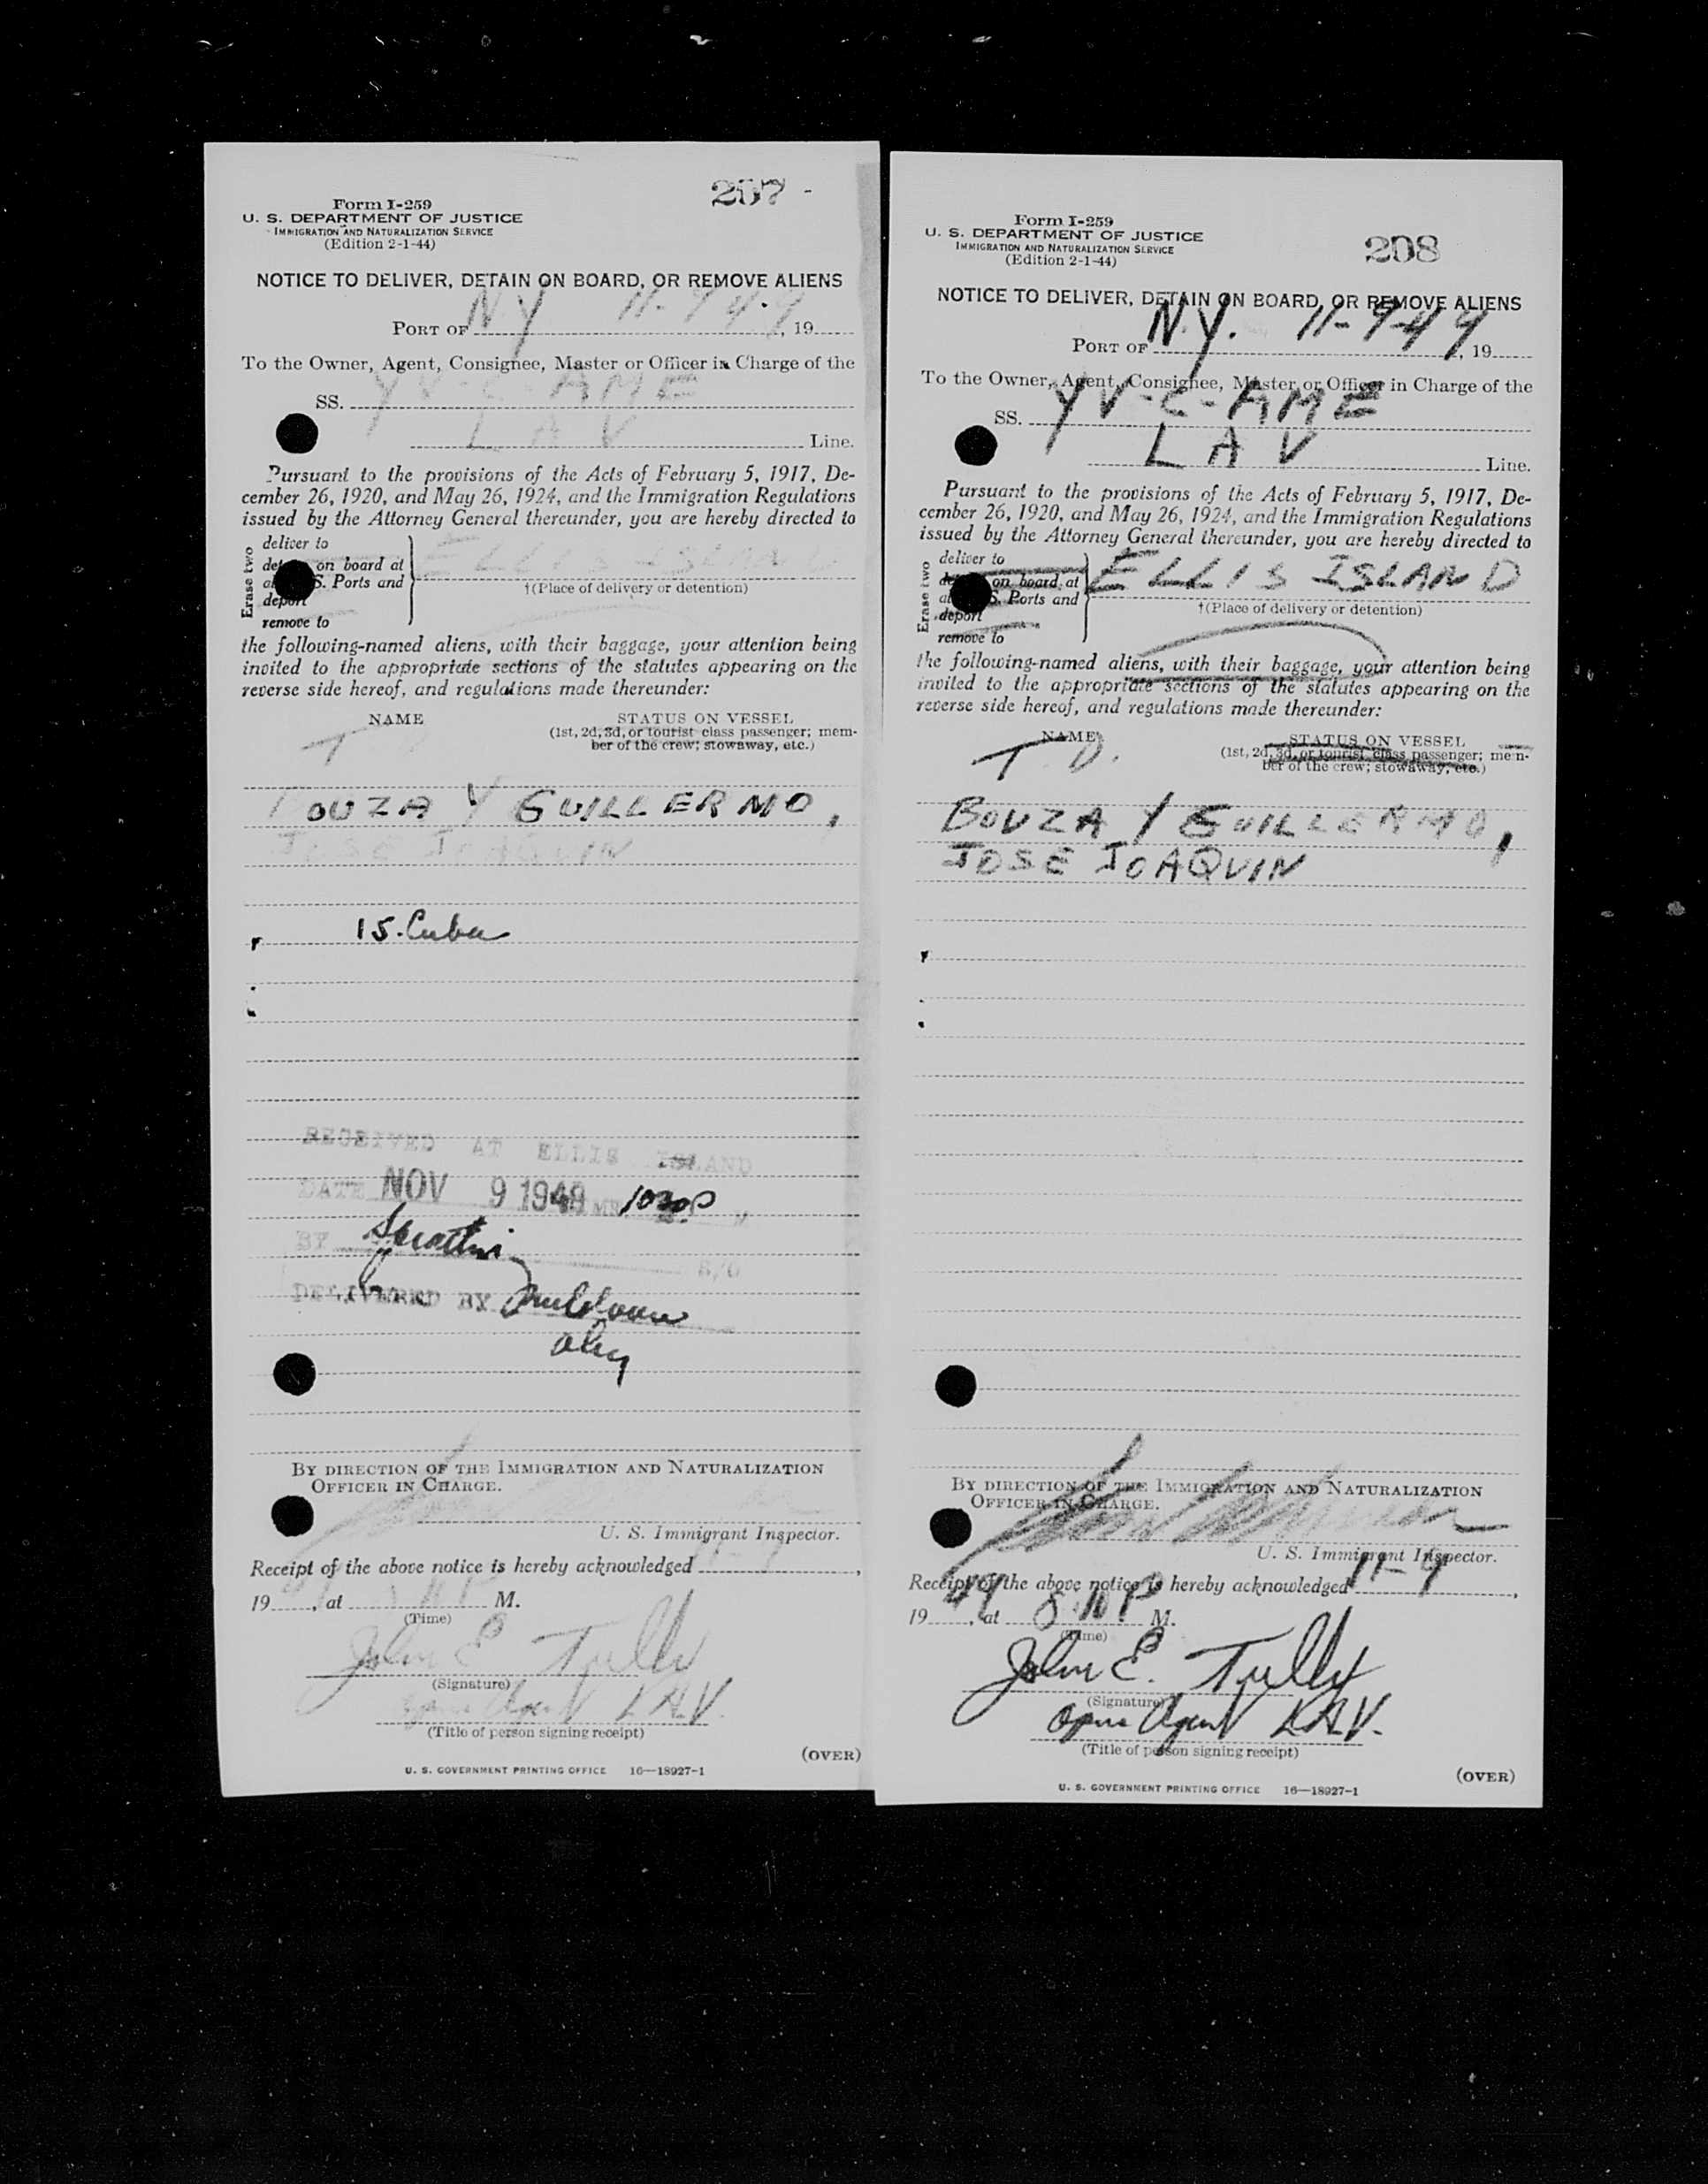 207 -
Form I-259
U. S. DEPARTMENT OF JUSTICE
IMMIGRATION AND NATURALIZATION SERVICE
(Edition 2-1-44)
NOTICE TO DELIVER, DETAIN ON BOARD, OR REMOVE ALIENS
PORT OF N Y 11-9-49, 19
To the Owner, Agent, Consignee, Master or Officer in Charge of the
SS. YV-C-AME
LAV Line.
Pursuant to the provisions of the Acts of February 5, 1917, De-
cember 26, 1920, and May 26, 1924, and the Immigration Regulations
issued by the Attorney General thereunder, you are hereby directed to
Erase two
deliver to
on board at ELLIS ISLAND
S. Ports and †(Place of delivery or detention)
deport
remove to
the following-named aliens, with their baggage, your attention being
invited to the appropriate sections of the statutes appearing on the
reverse side hereof, and regulations made thereunder:
NAME STATUS ON VESSEL
(1st, 2d, 3d, or tourist class passenger; mem-
ber of the crew; stowaway, etc.)
T
OUZA Y GUILLERMO,
JOSE JOAQUIN
15. Cuba
RECEIVED AT ELLIS ISLAND
DATE NOV 9 1949 1030P
BY
DELIVERED BY
BY DIRECTION OF THE IMMIGRATION AND NATURALIZATION
OFFICER IN CHARGE.
U. S. Immigrant Inspector.
Receipt of the above notice is hereby acknowledged 11-9,
19, at M.
(Time)
John E Tully
(Signature)
Agent LAV.
(Title of person signing receipt)
(OVER)
U. S. GOVERNMENT PRINTING OFFICE 16—18927-1
208
Form I-259
U. S. DEPARTMENT OF JUSTICE
IMMIGRATION AND NATURALIZATION SERVICE
(Edition 2-1-44)
NOTICE TO DELIVER, DETAIN ON BOARD, OR REMOVE ALIENS
PORT OF N.Y. 11-9-49, 19
To the Owner, Agent, Consignee, Master or Officer in Charge of the
SS. YV-C-AME
LAV Line.
Pursuant to the provisions of the Acts of February 5, 1917, De-
cember 26, 1920, and May 26, 1924, and the Immigration Regulations
issued by the Attorney General thereunder, you are hereby directed to
Erase two
deliver to
on board at ELLIS ISLAND
S. Ports and †(Place of delivery or detention)
deport
remove to
the following-named aliens, with their baggage, your attention being
invited to the appropriate sections of the statutes appearing on the
reverse side hereof, and regulations made thereunder:
NAME STATUS ON VESSEL
(1st, 2d, 3d, or tourist class passenger; mem-
ber of the crew; stowaway, etc.)
T.D.
BOUZA Y GUILLERMO,
JOSE JOAQUIN
BY DIRECTION OF THE IMMIGRATION AND NATURALIZATION
OFFICER IN CHARGE.
U. S. Immigrant Inspector.
Receipt of the above notice is hereby acknowledged 11-9,
19 49, at 8:10 P M.
(Time)
John E. Tully
(Signature)
Agent LAV.
(Title of person signing receipt)
(OVER)
U. S. GOVERNMENT PRINTING OFFICE 16—18927-1